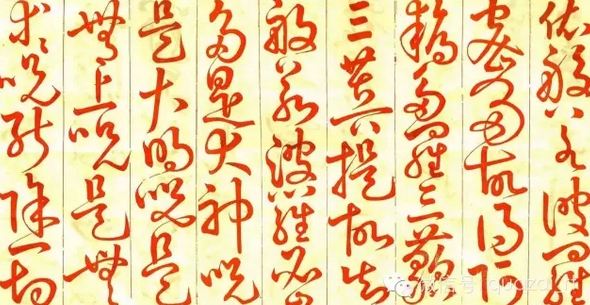 依般若波羅
密多故得
耨多羅三藐
三菩提故知
般若波羅密
多是大神呪
是大明呪是
無上呪是無
等々呪能除一切
微信号